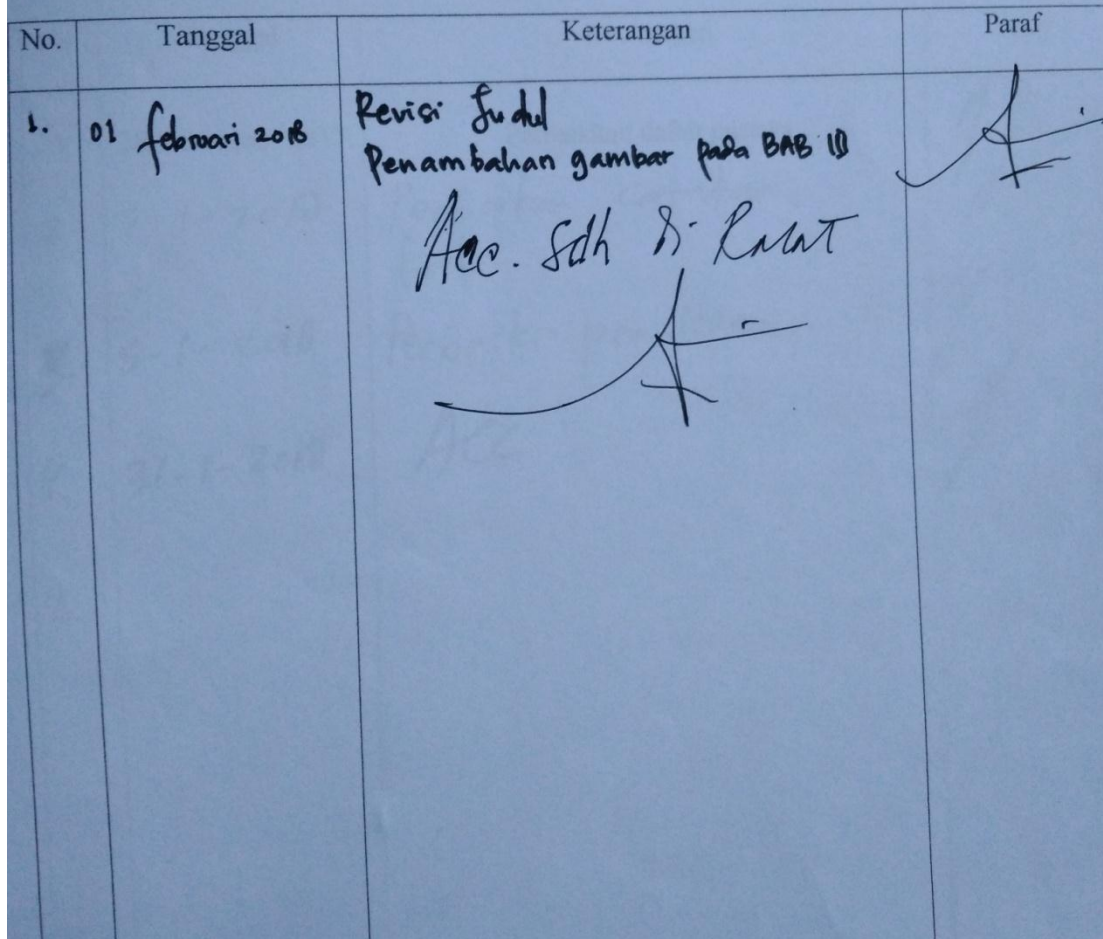 No. Tanggal Keterangan Paraf
1. 01 februari 2018 Revisi Judul
Penambahan gambar pada BAB III
Acc. Sdh di Ralat